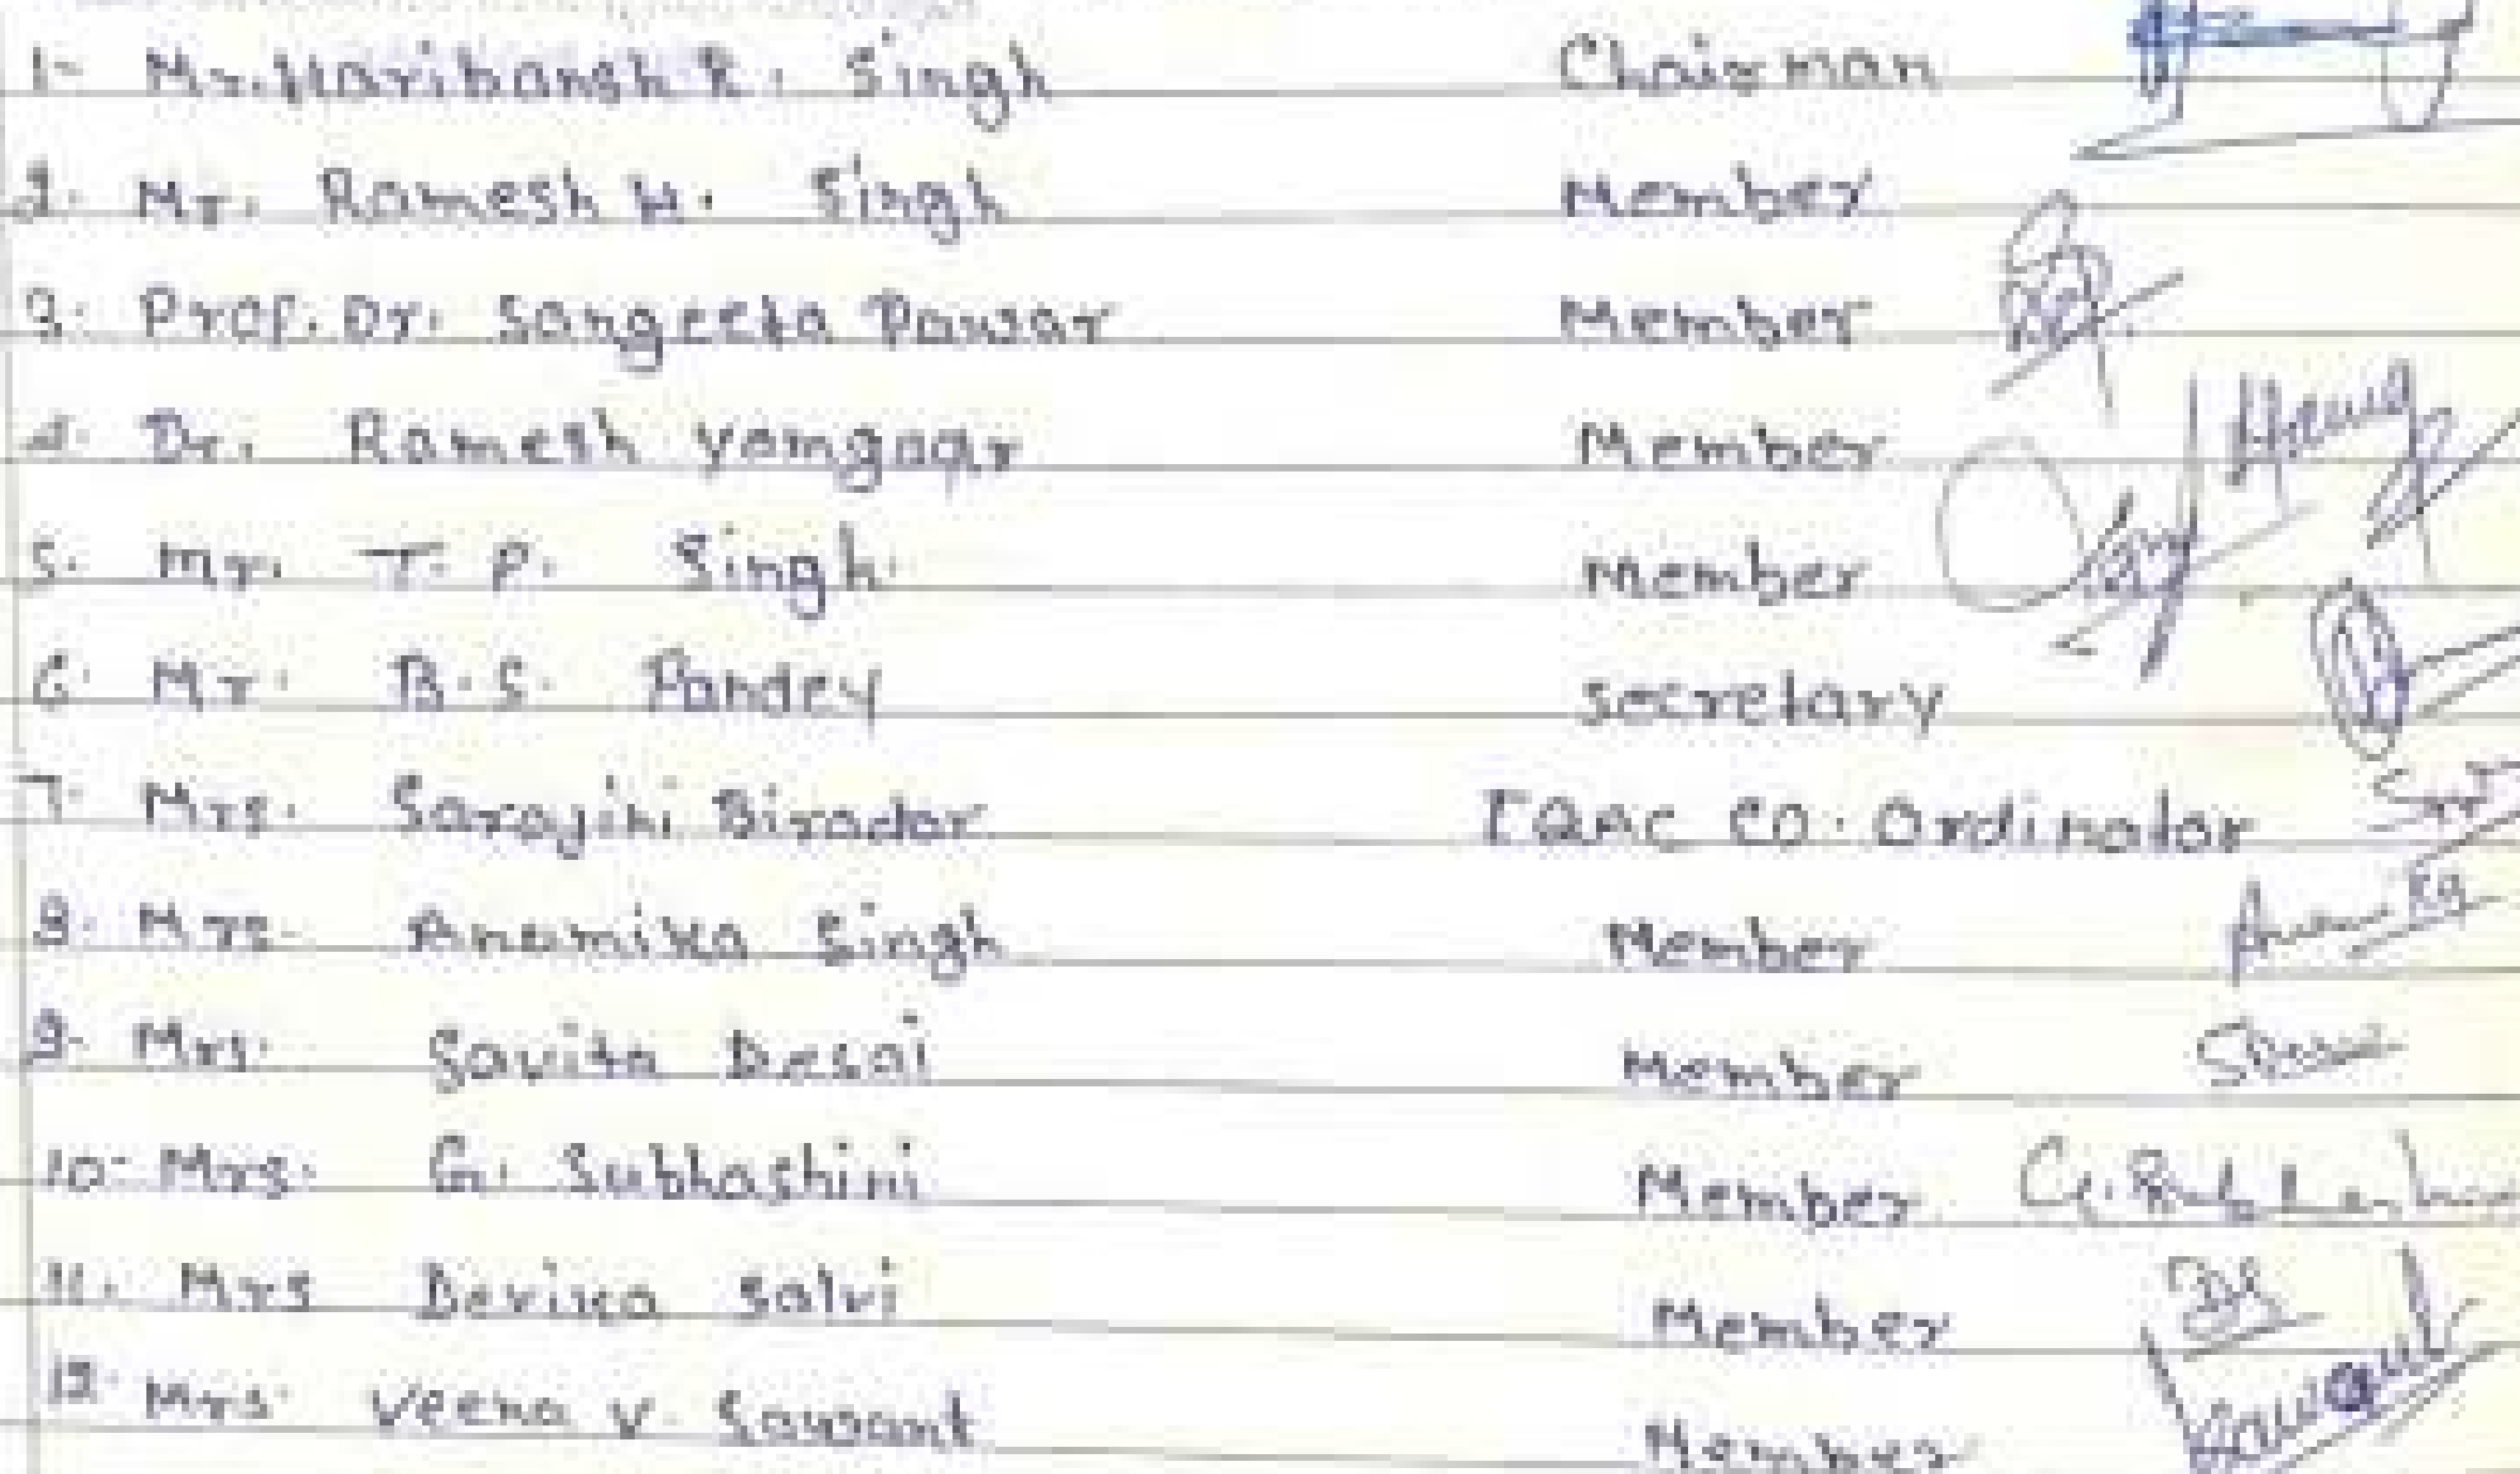 1- Mr. Haribansh R. Singh Chairman
2. Mr. Ramesh H. Singh Member
3. Prof. Dr. Sangeeta Pawar Member
4. Dr. Ramesh Yamgaar Member
5. Mr. T. P. Singh Member
6. Mr. B. S. Pandey Secretary
7. Mrs. Sarojini Biradar IQAC CO. Ordinator
8. Mrs. Anamika Singh Member
9. Mrs. Savita Desai Member
10- Mrs. G. Subhashini Member G. Subhashini
11. Mrs Devika Salvi Member
12. Mrs. Veena V. Sawant Member Sawant